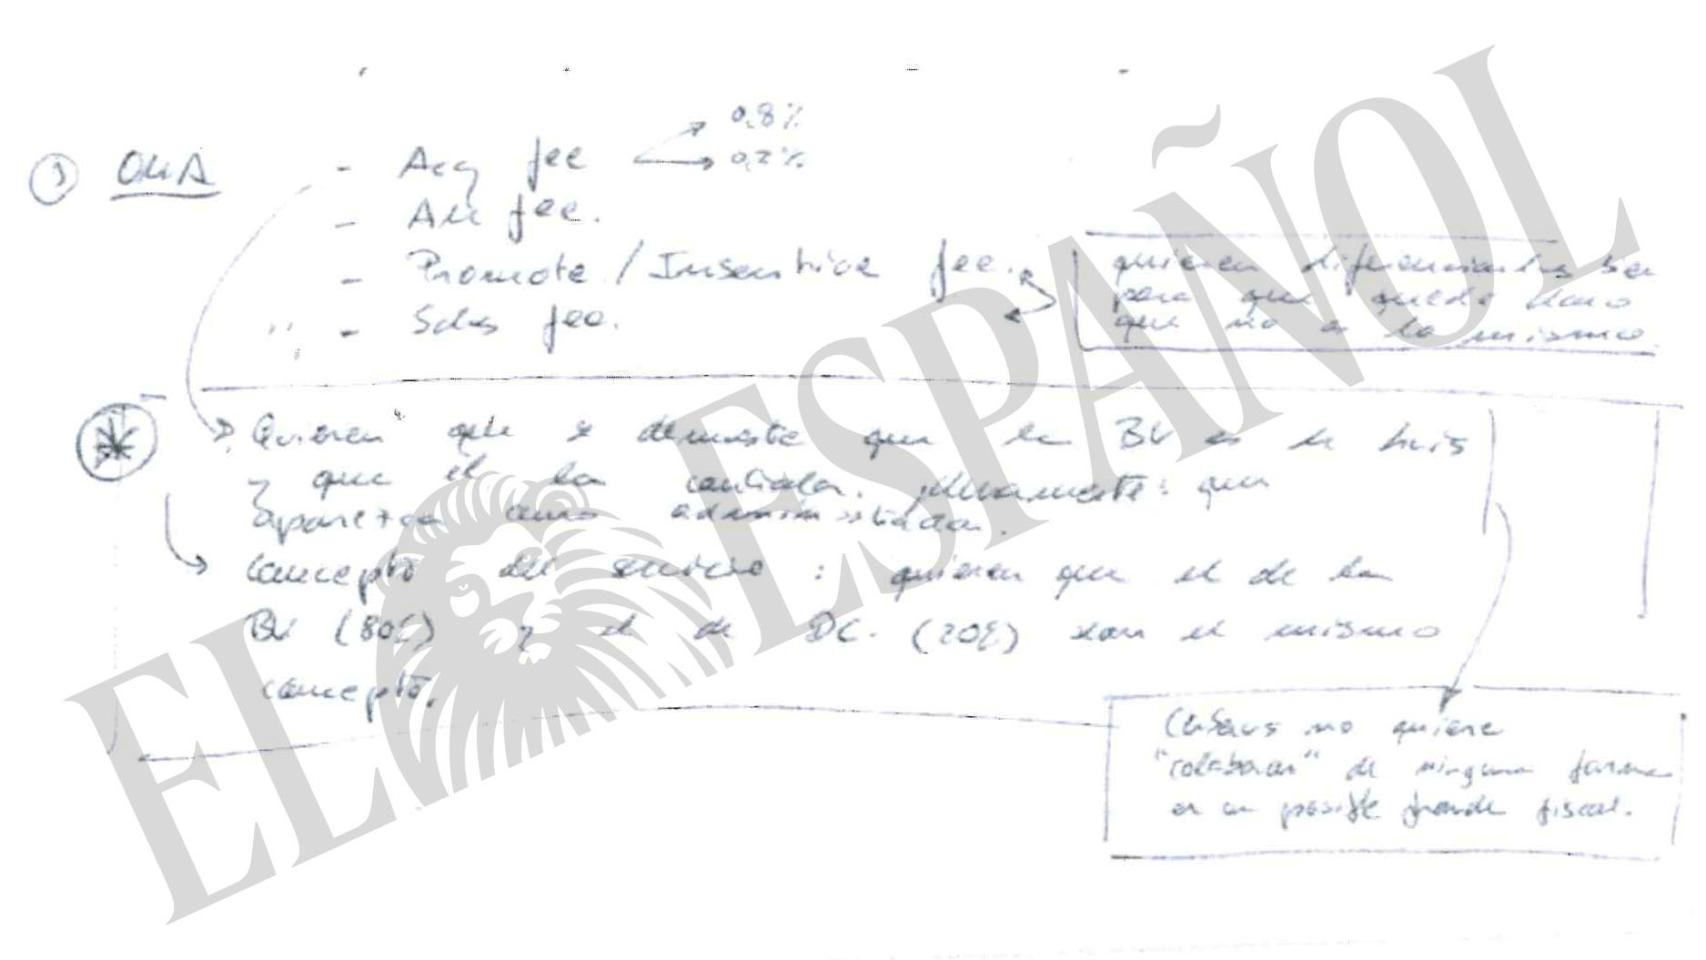 ① OMA
- Acq fee
0,8%
0,2%
- AM fee.
- Promote / Insentive fee.
- Sales fee.
quieren diferenciarlas bien
para que quede claro
que no es lo mismo.
Quieren que se demuestre que la BV es de Luis
y que él la controla. idealmente: que
aparezca como administrador.
Concepto del servicio: quieren que el de la
BV (80%) y el de DC. (20%) sean el mismo
concepto.
Cerberus no quiere
"colaborar" de ninguna forma
en un posible fraude fiscal.
EL ESPAÑOL